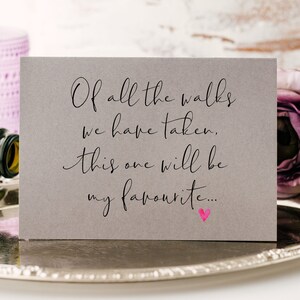 Of all the walks
we have taken,
this one will be
my favourite...